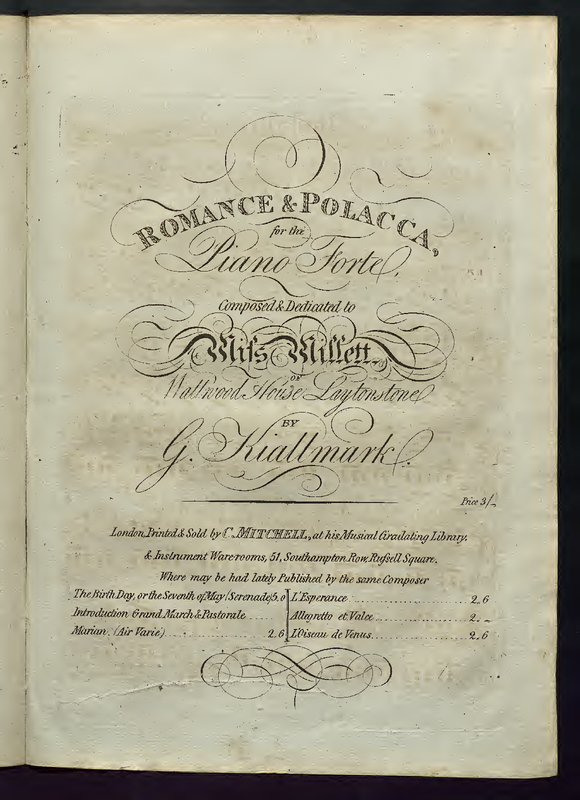 ROMANCE & POLACCA,
for the
Piano Forte,
Composed & Dedicated to
Miſs Millett,
OF
Wallwood House Laytonstone
BY
G. Kiallmark.
Price 3/_
London, Printed & Sold by C. MITCHELL, at his Musical Circulating Library,
& Instrument Warerooms, 51, Southampton Row, Ruſsell Square.
Where may be had lately Published by the same Composer
The Birth Day, or the Seventh of May (Serenade) 5.0
Introduction Grand March & Pastorale
Marian. (Air Varie) 2.6
L'Esperance 2.6
Allegretto et Valce 2._
L'Oiseau de Venus 2.6